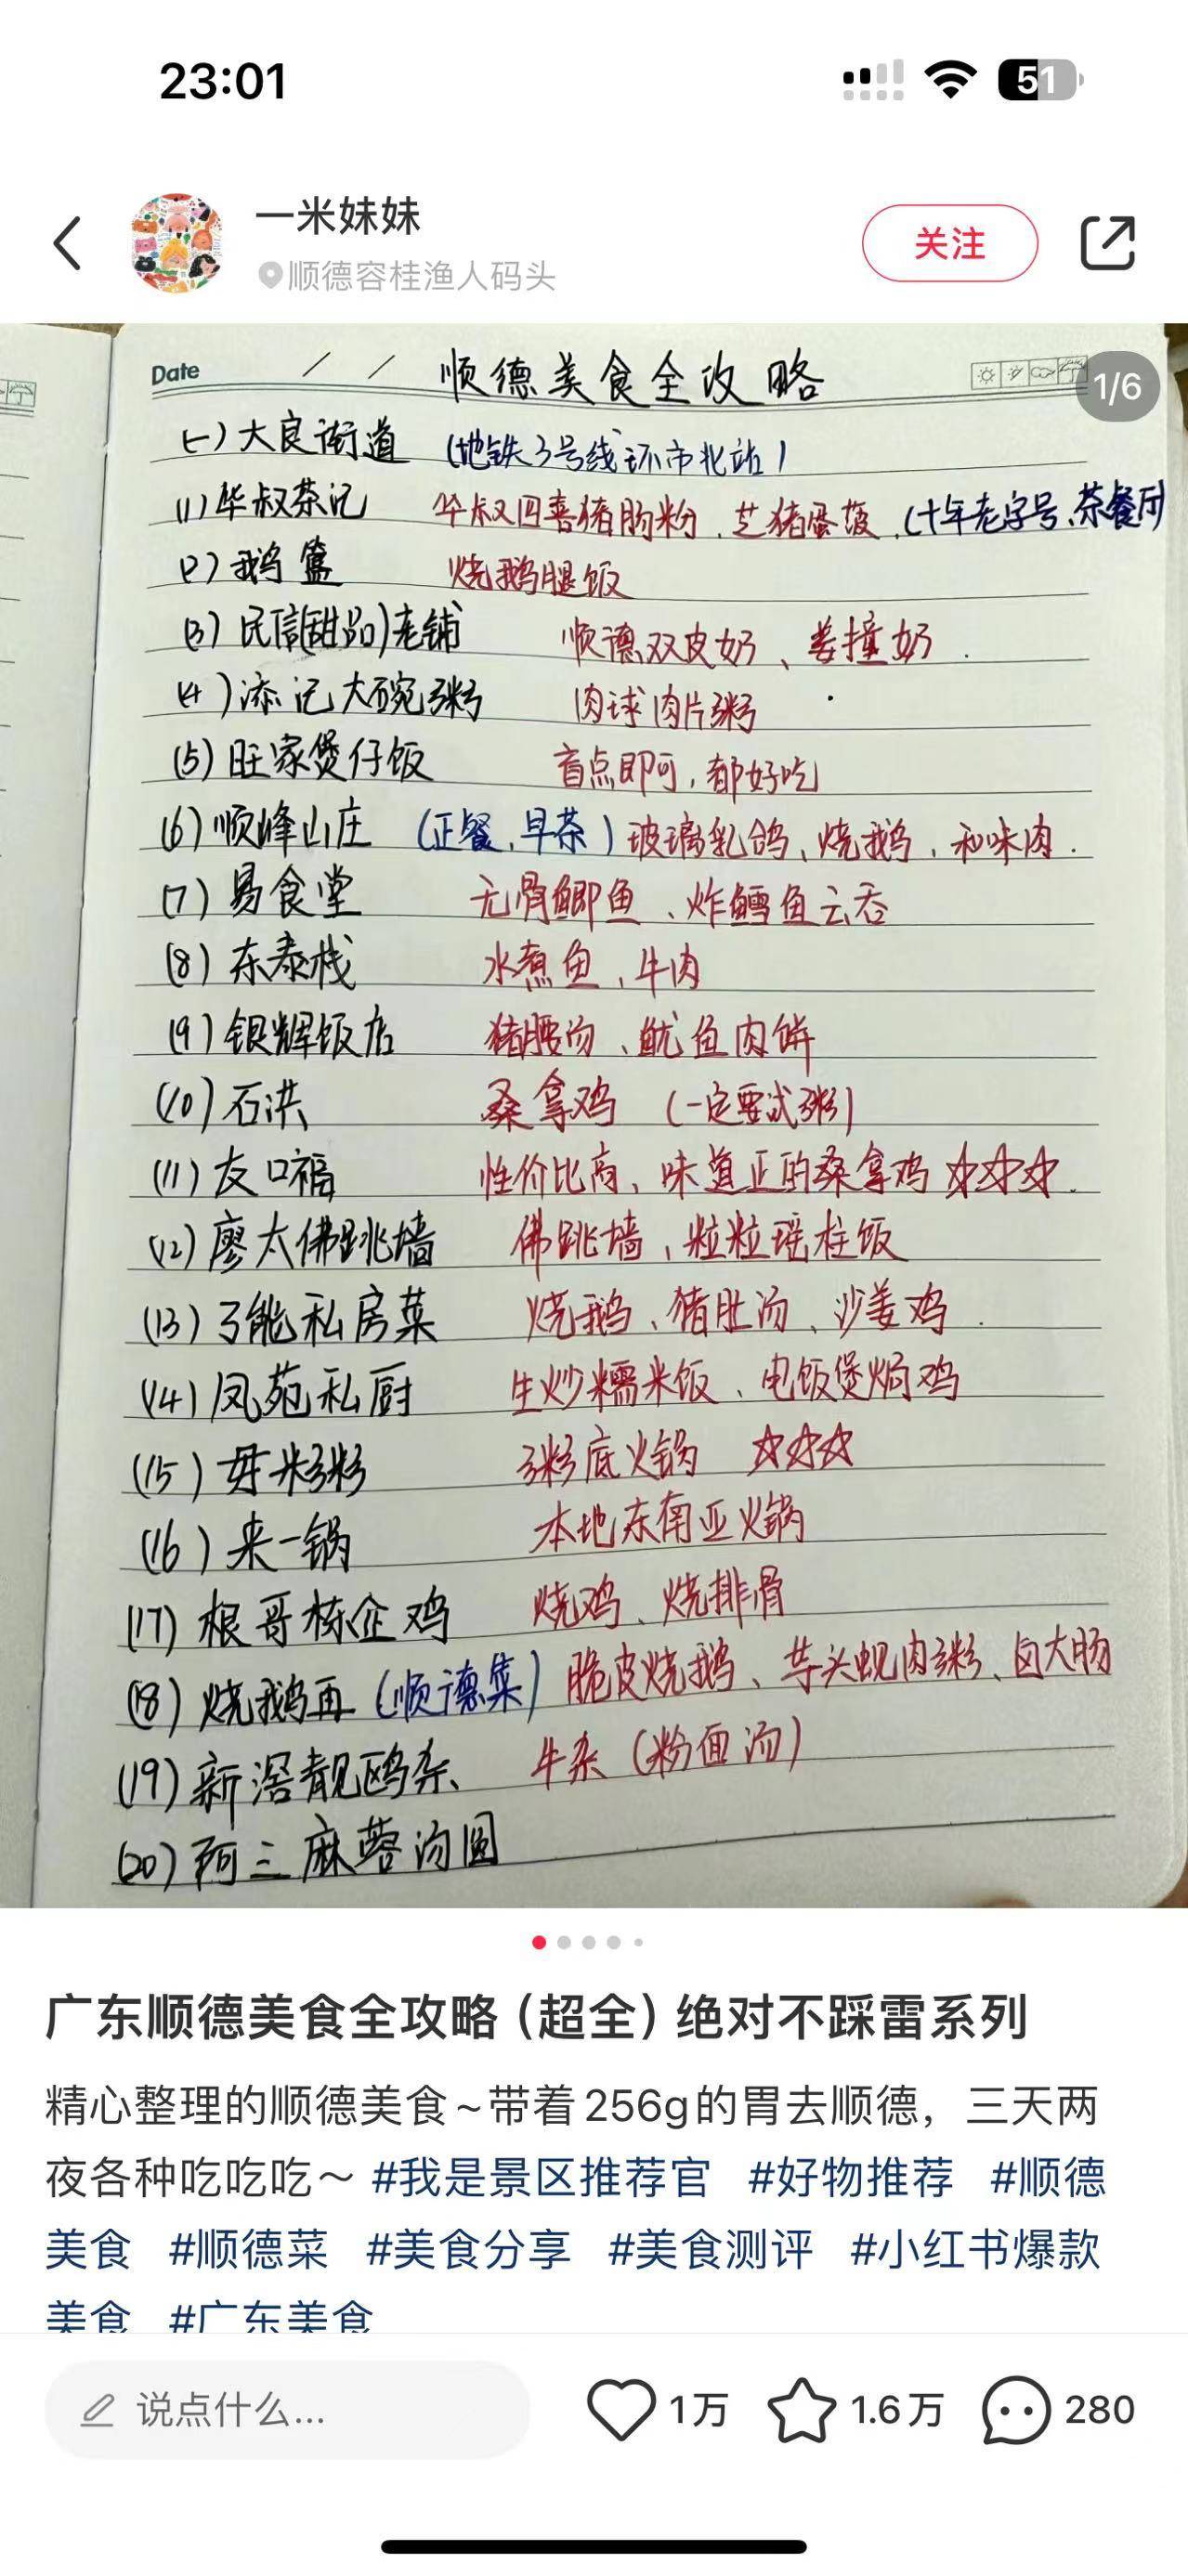 23:01
51
一米妹妹
顺德容桂渔人码头
关注
1/6
Date / / 顺德美食全攻略
(一) 大良街道 (地铁3号线环市北站)
(1) 华叔茶记 华叔四喜猪肠粉、芝猪蛋菠、(十年老字号、茶餐厅)
(2) 鹅篮 烧鹅腿饭
(3) 民信(甜品)老铺 顺德双皮奶、姜撞奶.
(4) 添记大碗粥 肉球肉片粥
(5) 旺家煲仔饭 盲点即可,都好吃
(6) 顺峰山庄 (正餐,早茶) 玻璃乳鸽、烧鹅、和味肉.
(7) 易食堂 无骨鲫鱼、炸鳕鱼云吞
(8) 东泰栈 水煮鱼、牛肉
(9) 银辉饭店 猪腰汤、鱿鱼肉饼
(10) 石洪 桑拿鸡 (一定要试粥)
(11) 友口福 性价比高,味道正的桑拿鸡 ☆☆☆.
(12) 廖太佛跳墙 佛跳墙,粒粒瑶柱饭
(13) 了能私房菜 烧鹅、猪肚汤、沙姜鸡.
(14) 凤苑私厨 生炒糯米饭、电饭煲焗鸡
(15) 毋米粥 粥底火锅 ☆☆☆
(16) 来一锅 本地东南亚火锅
(17) 根哥栋企鸡 烧鸡、烧排骨
(18) 烧鹅再 (顺德集) 脆皮烧鹅、芋头蚬肉粥、卤大肠
(19) 新滘靓 牛杂 (粉面汤)
(20) 阿三麻蓉汤圆
广东顺德美食全攻略(超全)绝对不踩雷系列
精心整理的顺德美食~带着256g的胃去顺德，三天两
夜各种吃吃吃～ #我是景区推荐官 #好物推荐 #顺德
美食 #顺德菜 #美食分享 #美食测评 #小红书爆款
美食 #广东美食
说点什么...
1万
1.6万
280